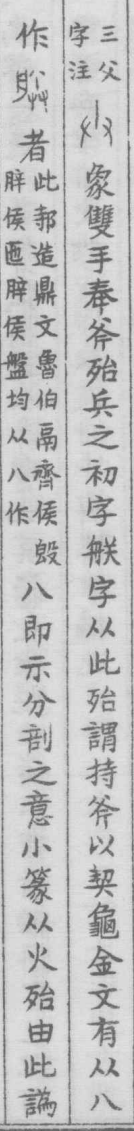 三父
字注
象雙手奉斧殆兵之初字朕字从此殆謂持斧以契龜金文有从八
作
者
此邾造鼎文魯伯鬲齊侯𣪘
辥侯匜辥侯盤均从八作
八即示分剖之意小篆从火殆由此譌